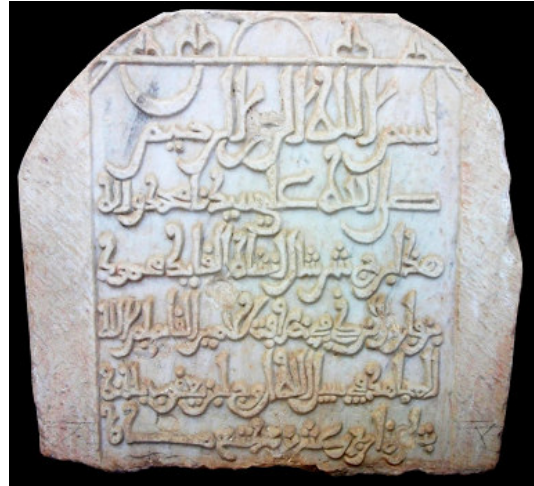 بسم الله الرحمن الرحيم
صلى الله على سيدنا محمد واله
هذا برج شرشال انشاه القايد محمود
بن فارس في الامير القايم بامر الله
المجاهد في سبيل الله اروج بن يعقوب باذنه
بتاريخ عشرين تسع ماية